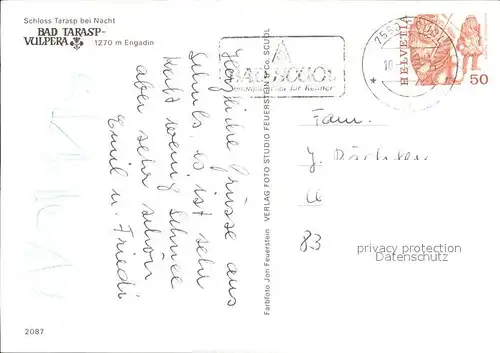 Schloss Tarasp bei Nacht
BAD TARASP-
VULPERA 1270 m Engadin
Herzliche Grüsse aus
Schuls, es ist sehr
kalt wenig Schnee
aber sehr schön
Emil u. Friedi
Farbfoto Jon Feuerstein VERLAG FOTO STUDIO FEUERSTEIN SCUOL
2087
BAD SCUOL
für Kenner
7550
10
HELVETIA
50
Fam.
J.
83
privacy protection
Datenschutz